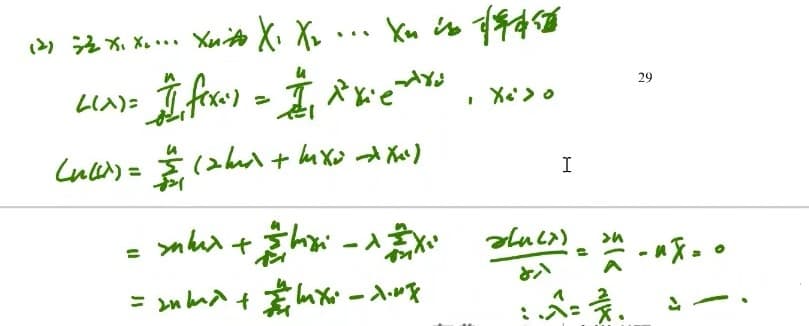 (2) 设 x₁ x₂ ⋯ xₙ 为 X₁ X₂ ⋯ Xₙ 的样本值
L(λ) = ∏ᵢ₌₁ⁿ f(xᵢ) = ∏ᵢ₌₁ⁿ λ² xᵢ e^(-λxᵢ) , xᵢ > 0
29
Ln L(λ) = ∑ᵢ₌₁ⁿ (2lnλ + ln xᵢ - λxᵢ)
= 2n lnλ + ∑ᵢ₌₁ⁿ ln xᵢ - λ ∑ᵢ₌₁ⁿ xᵢ
∂Ln(λ)/∂λ = 2n/λ - n x̄ = 0
= 2n lnλ + ∑ᵢ₌₁ⁿ ln xᵢ - λ·n x̄
∴ λ̂ = 2/x̄ .